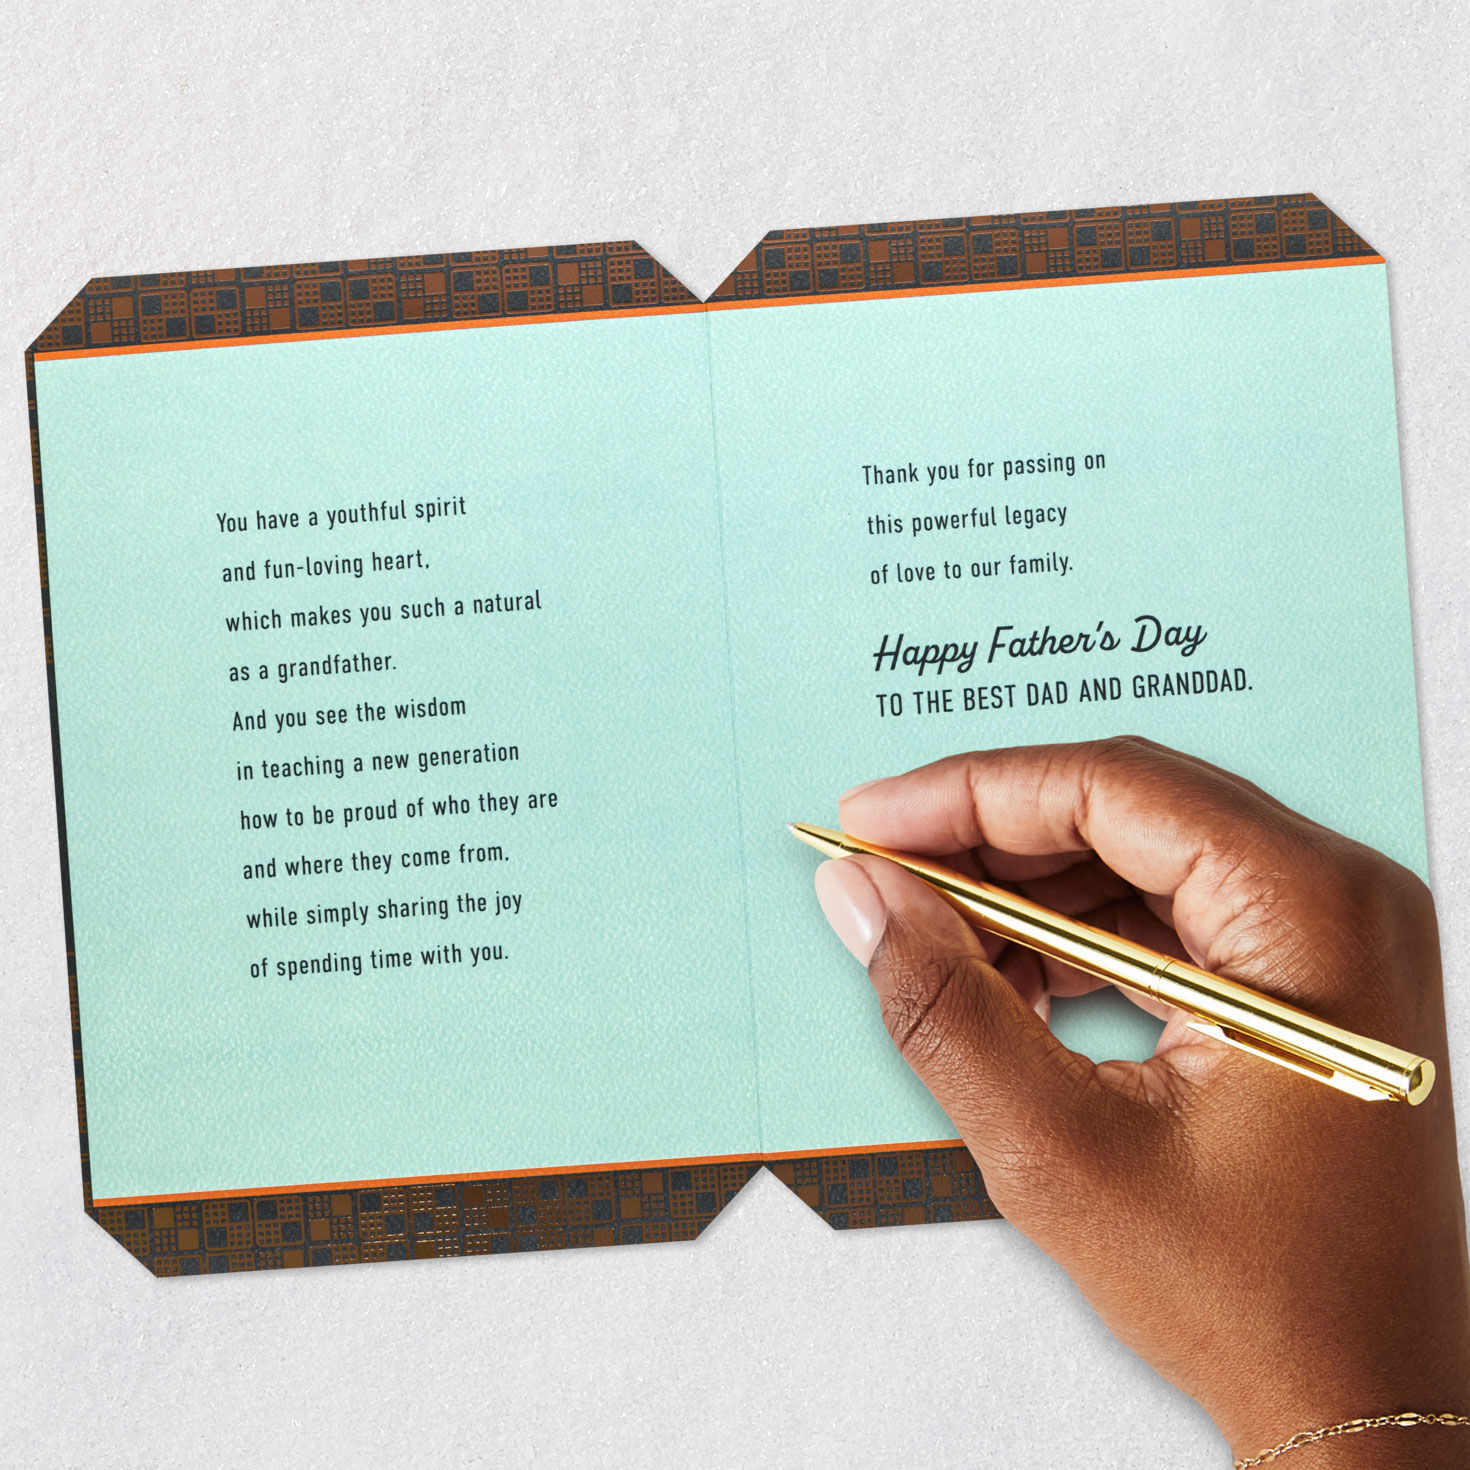 You have a youthful spirit
and fun-loving heart,
which makes you such a natural
as a grandfather.
And you see the wisdom
in teaching a new generation
how to be proud of who they are
and where they come from,
while simply sharing the joy
of spending time with you.
Thank you for passing on
this powerful legacy
of love to our family.
Happy Father's Day
TO THE BEST DAD AND GRANDDAD.